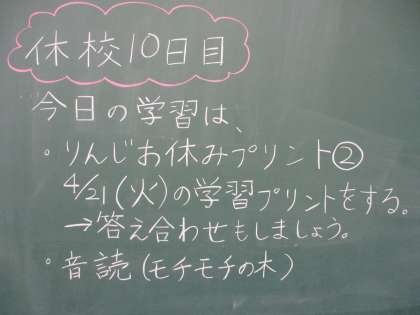 休校10日目
今日の学習は、
・りんじお休みプリント②
4/21(火)の学習プリントをする。
→答え合わせもしましょう。
・音読(モチモチの木)